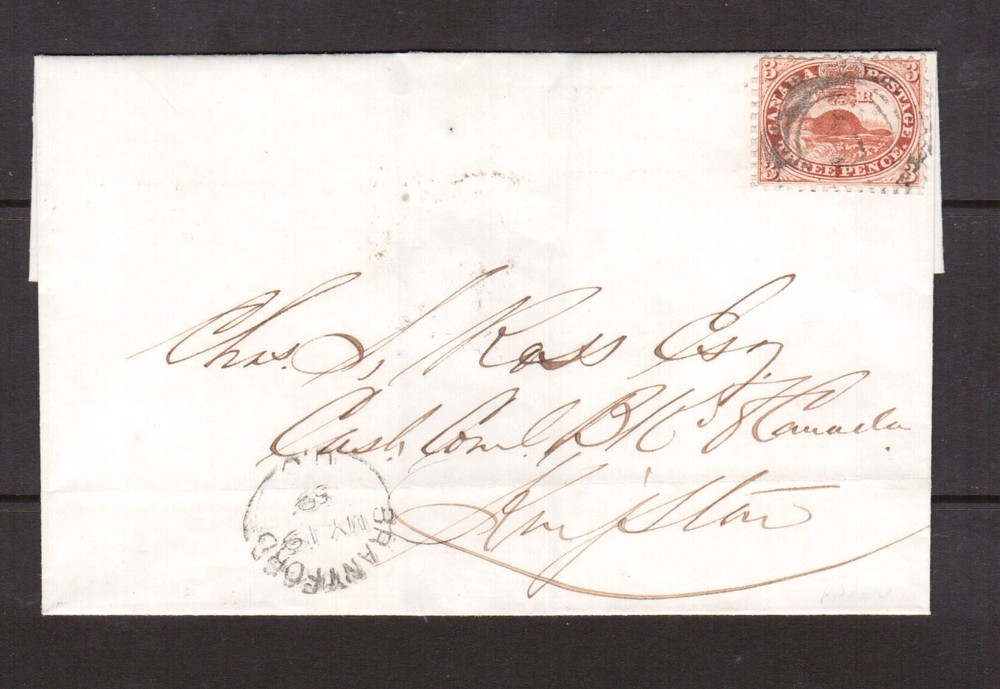 3 CANADA POSTAGE 3
V R
3 THREE PENCE. 3
Chas. S. Ross Esq
Cash. Coml. B k. of Canada
Kingston
BRANTFORD
MY 19
59